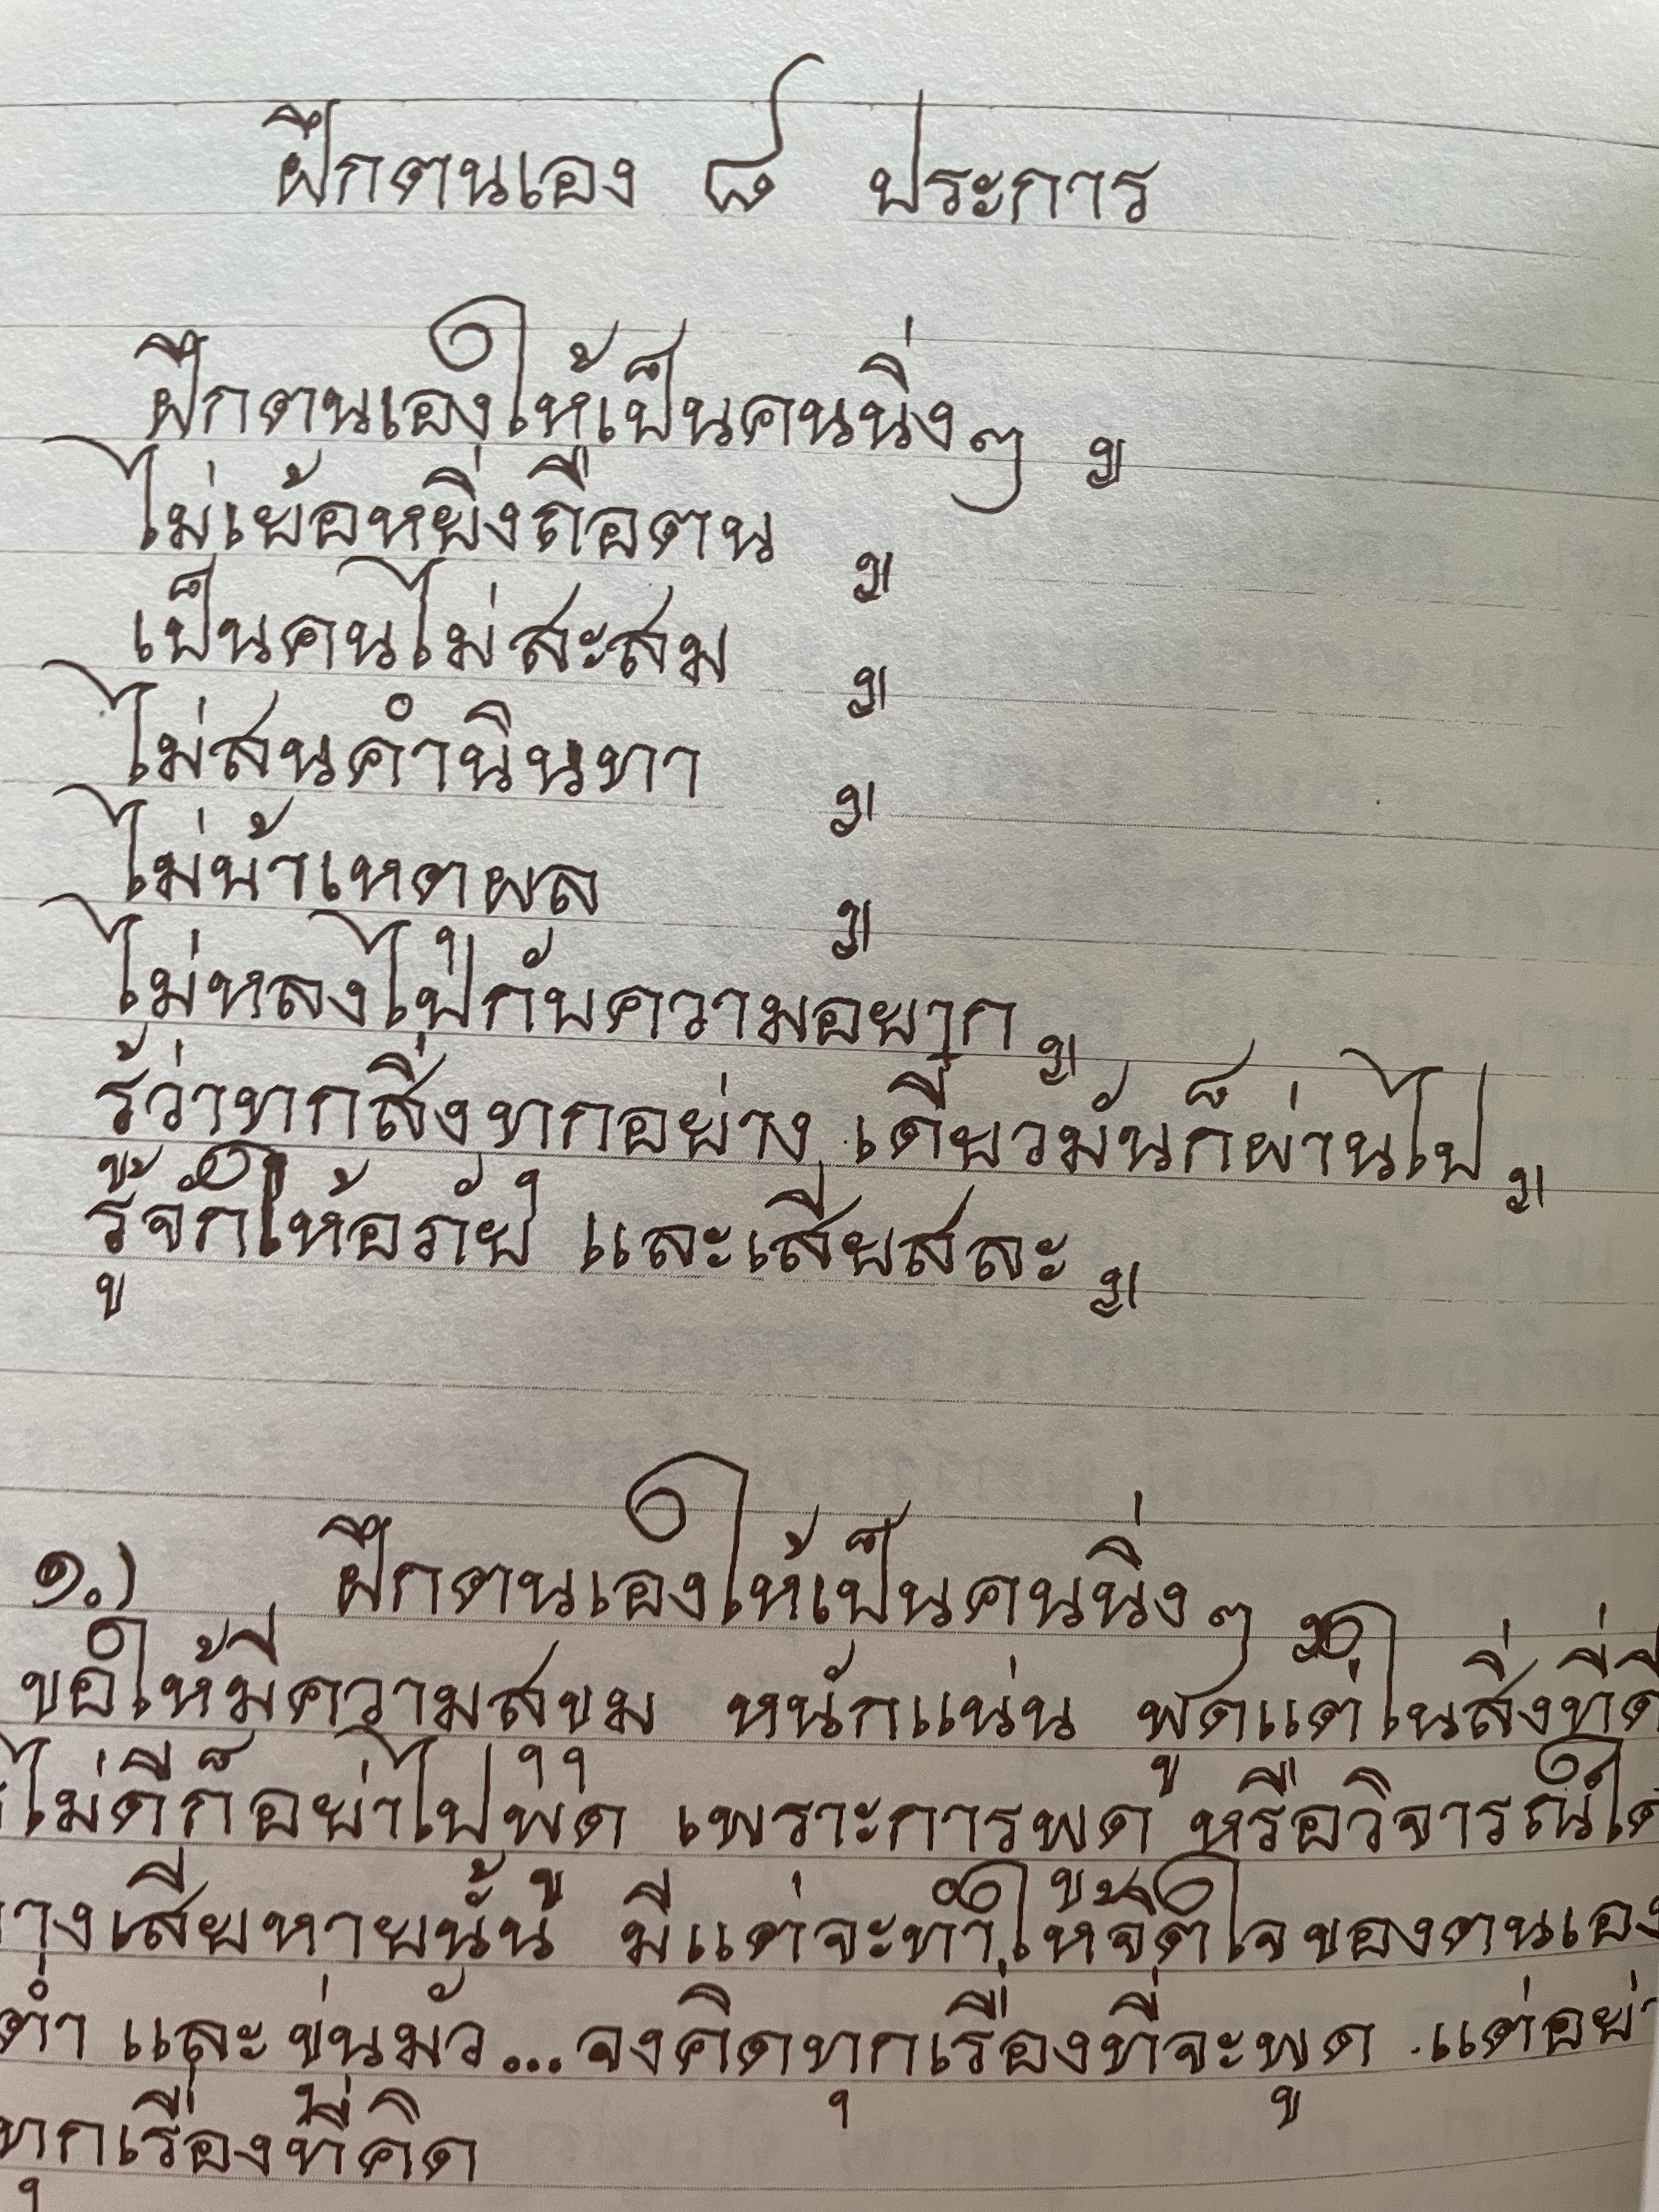 ฝึกตนเอง ๘ ประการ
ฝึกตนเองให้เป็นคนนิ่งๆ ๚
ไม่เย้อหยิ่งถือตน ๚
เป็นคนไม่สะสม ๚
ไม่สนคำนินทา ๚
ไม่บ้าเหตุผล ๚
ไม่หลงไปกับความอยาก ๚
รู้ว่าทุกสิ่งทุกอย่าง เดี๋ยวมันก็ผ่านไป ๚
รู้จักให้อภัย และเสียสละ ๚
๑.) ฝึกตนเองให้เป็นคนนิ่งๆ ๚
ขอให้มีความสุขุม หนักแน่น พูดแต่ในสิ่งที่ดี
ไม่ดีก็อย่าไปพูด เพราะการพูด หรือวิจารณ์ใด
ทางเสียหายนั้น มีแต่จะทำให้จิตใจของตนเอง
ต่ำ และขุ่นมัว...จงคิดทุกเรื่องที่จะพูด แต่อย่า
ทุกเรื่องที่คิด